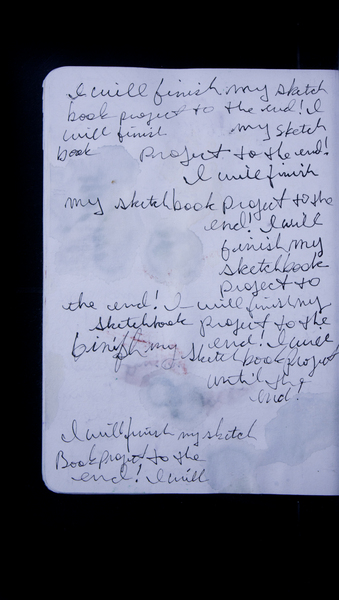 I will finish my sketch
book project to the end! I
will finish my sketch
book project to the end!
I will finish
my sketchbook project to the
end! I will
finish my
sketchbook
project to
the end! I will finish my
sketchbook project to the
end! I will
finish my sketchbook project
until the
end!
I will finish my sketch
Book project to the
end! I will